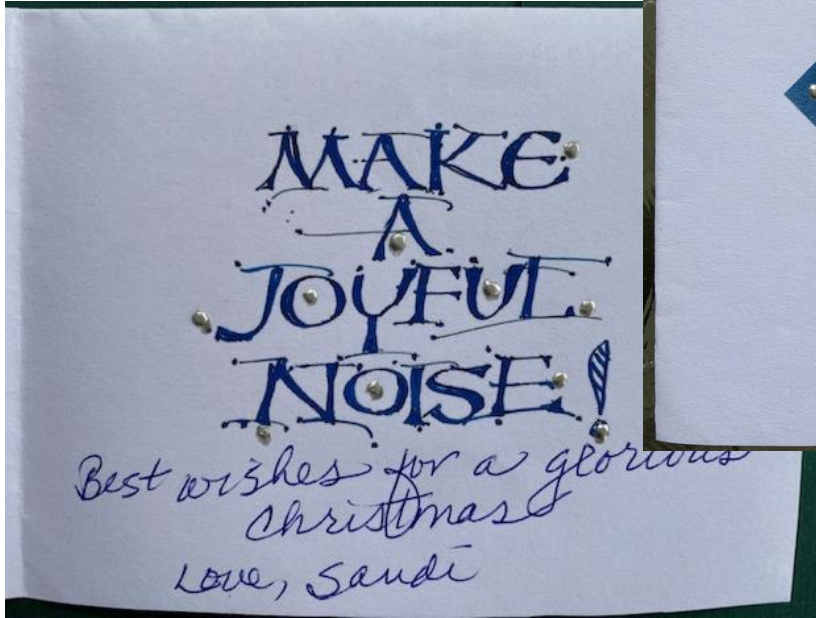 MAKE
A
JOYFUL
NOISE!
Best wishes for a glorious
Christmas
Love, Sandi